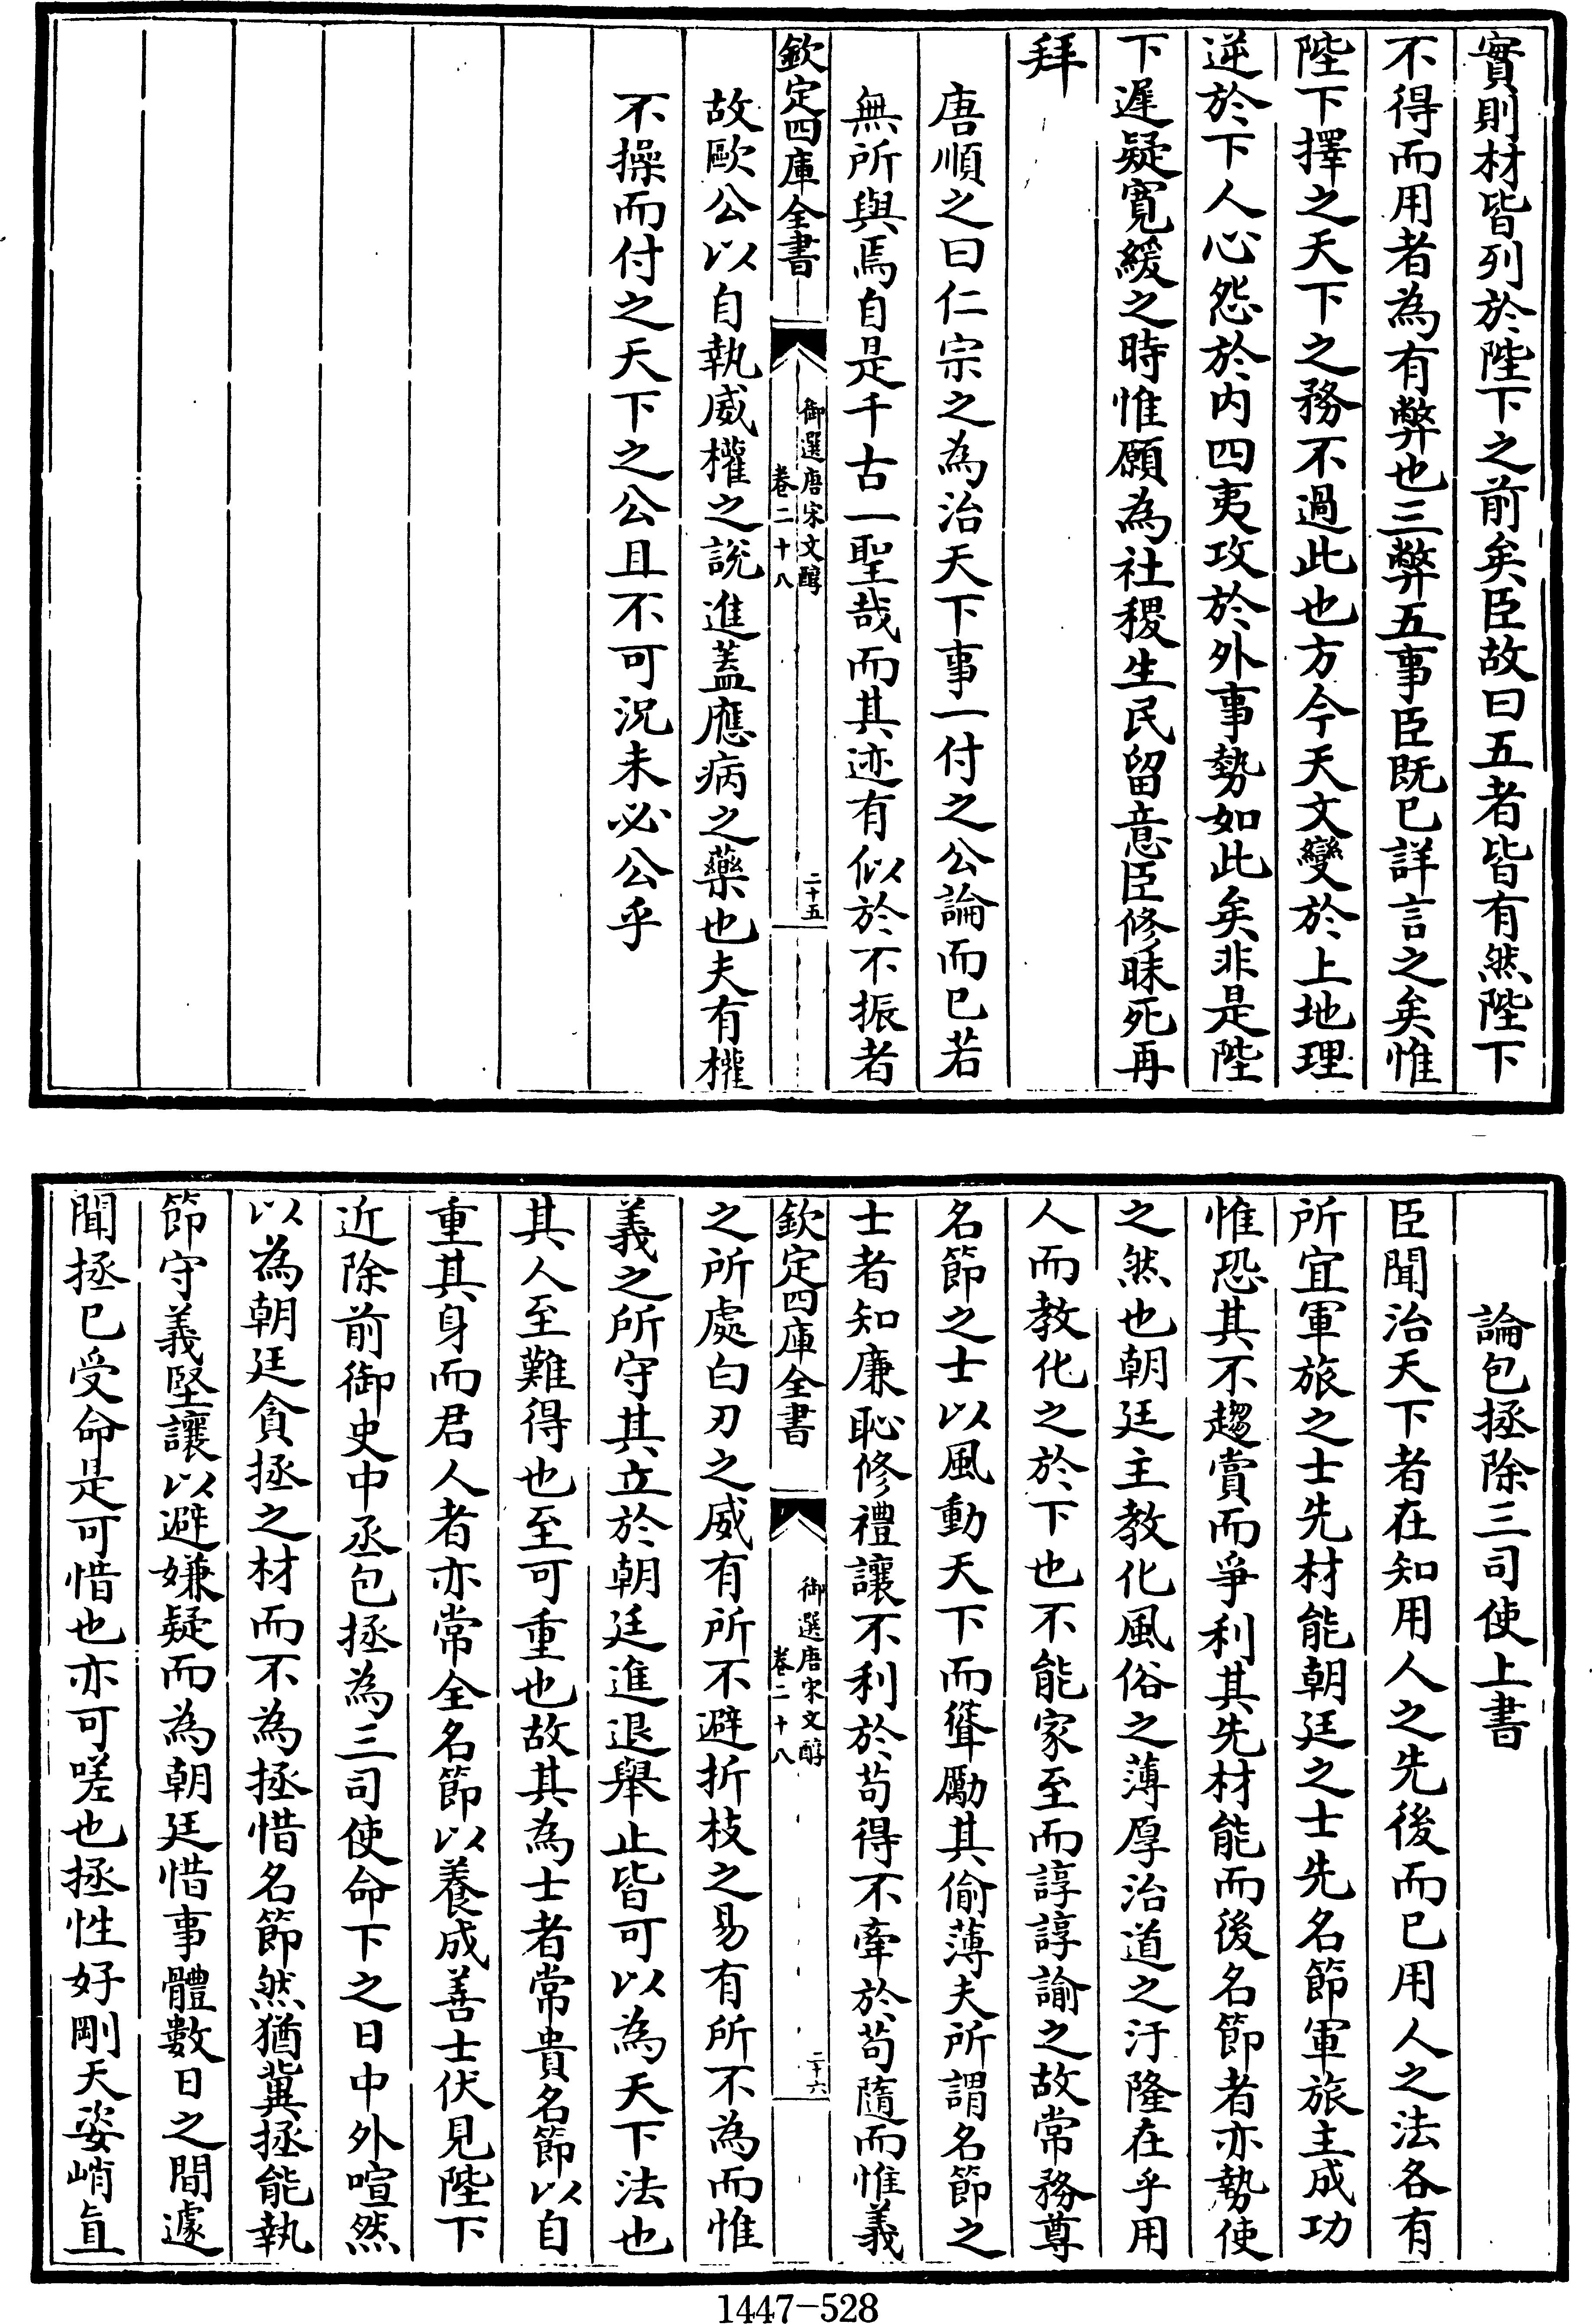 實則材皆列於陛下之前矣臣故曰五者皆有然陛下
不得而用者為有弊也三弊五事臣既已詳言之矣惟
陛下擇之天下之務不過此也方今天文變於上地理
逆於下人心怨於內四夷攻於外事勢如此矣非是陛
下遲疑寬緩之時惟願為社稷生民留意臣修昧死再
拜
唐順之曰仁宗之為治天下事一付之公論而已若
無所與焉自是千古一聖哉而其迹有似於不振者
欽定四庫全書
御選唐宋文醇
卷二十八
二十五
故歐公以自執威權之說進蓋應病之藥也夫有權
不操而付之天下之公且不可況未必公乎
論包拯除三司使上書
臣聞治天下者在知用人之先後而已用人之法各有
所宜軍旅之士先材能朝廷之士先名節軍旅主成功
惟恐其不趨賞而爭利其先材能而後名節者亦勢使
之然也朝廷主教化風俗之薄厚治道之汙隆在乎用
人而教化之於下也不能家至而諄諄諭之故常務尊
名節之士以風動天下而聳勵其偷薄夫所謂名節之
士者知廉恥修禮讓不利於苟得不牽於苟隨而惟義
欽定四庫全書
御選唐宋文醇
卷二十八
二十六
之所處白刃之威有所不避折枝之易有所不為而惟
義之所守其立於朝廷進退舉止皆可以為天下法也
其人至難得也至可重也故其為士者常貴名節以自
重其身而君人者亦常全名節以養成善士伏見陛下
近除前御史中丞包拯為三司使命下之日中外喧然
以為朝廷貪拯之材而不為拯惜名節然猶冀拯能執
節守義堅讓以避嫌疑而為朝廷惜事體數日之間遽
聞拯已受命是可惜也亦可嗟也拯性好剛天姿峭直
1447-528